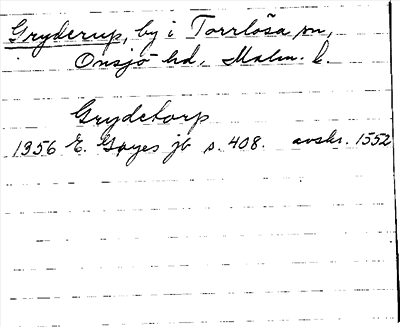 Gryderup, by i Torrlösa sn,
Onsjö hd, Malm. l.
Grydetorp
1356 E. Gøyes jb s. 408. avskr. 1552